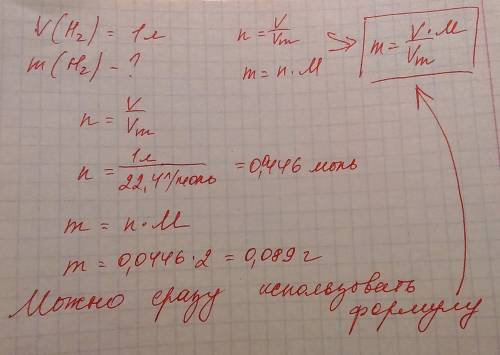 V(H₂) = 1л
n = V/Vm
m = V·M/Vm
m(H₂) - ?
m = n·M
n = V/Vm
n = 1л/22,4 л/моль = 0,446 моль
m = n·M
m = 0,0446·2 = 0,089 г
Можно сразу использовать
формулу